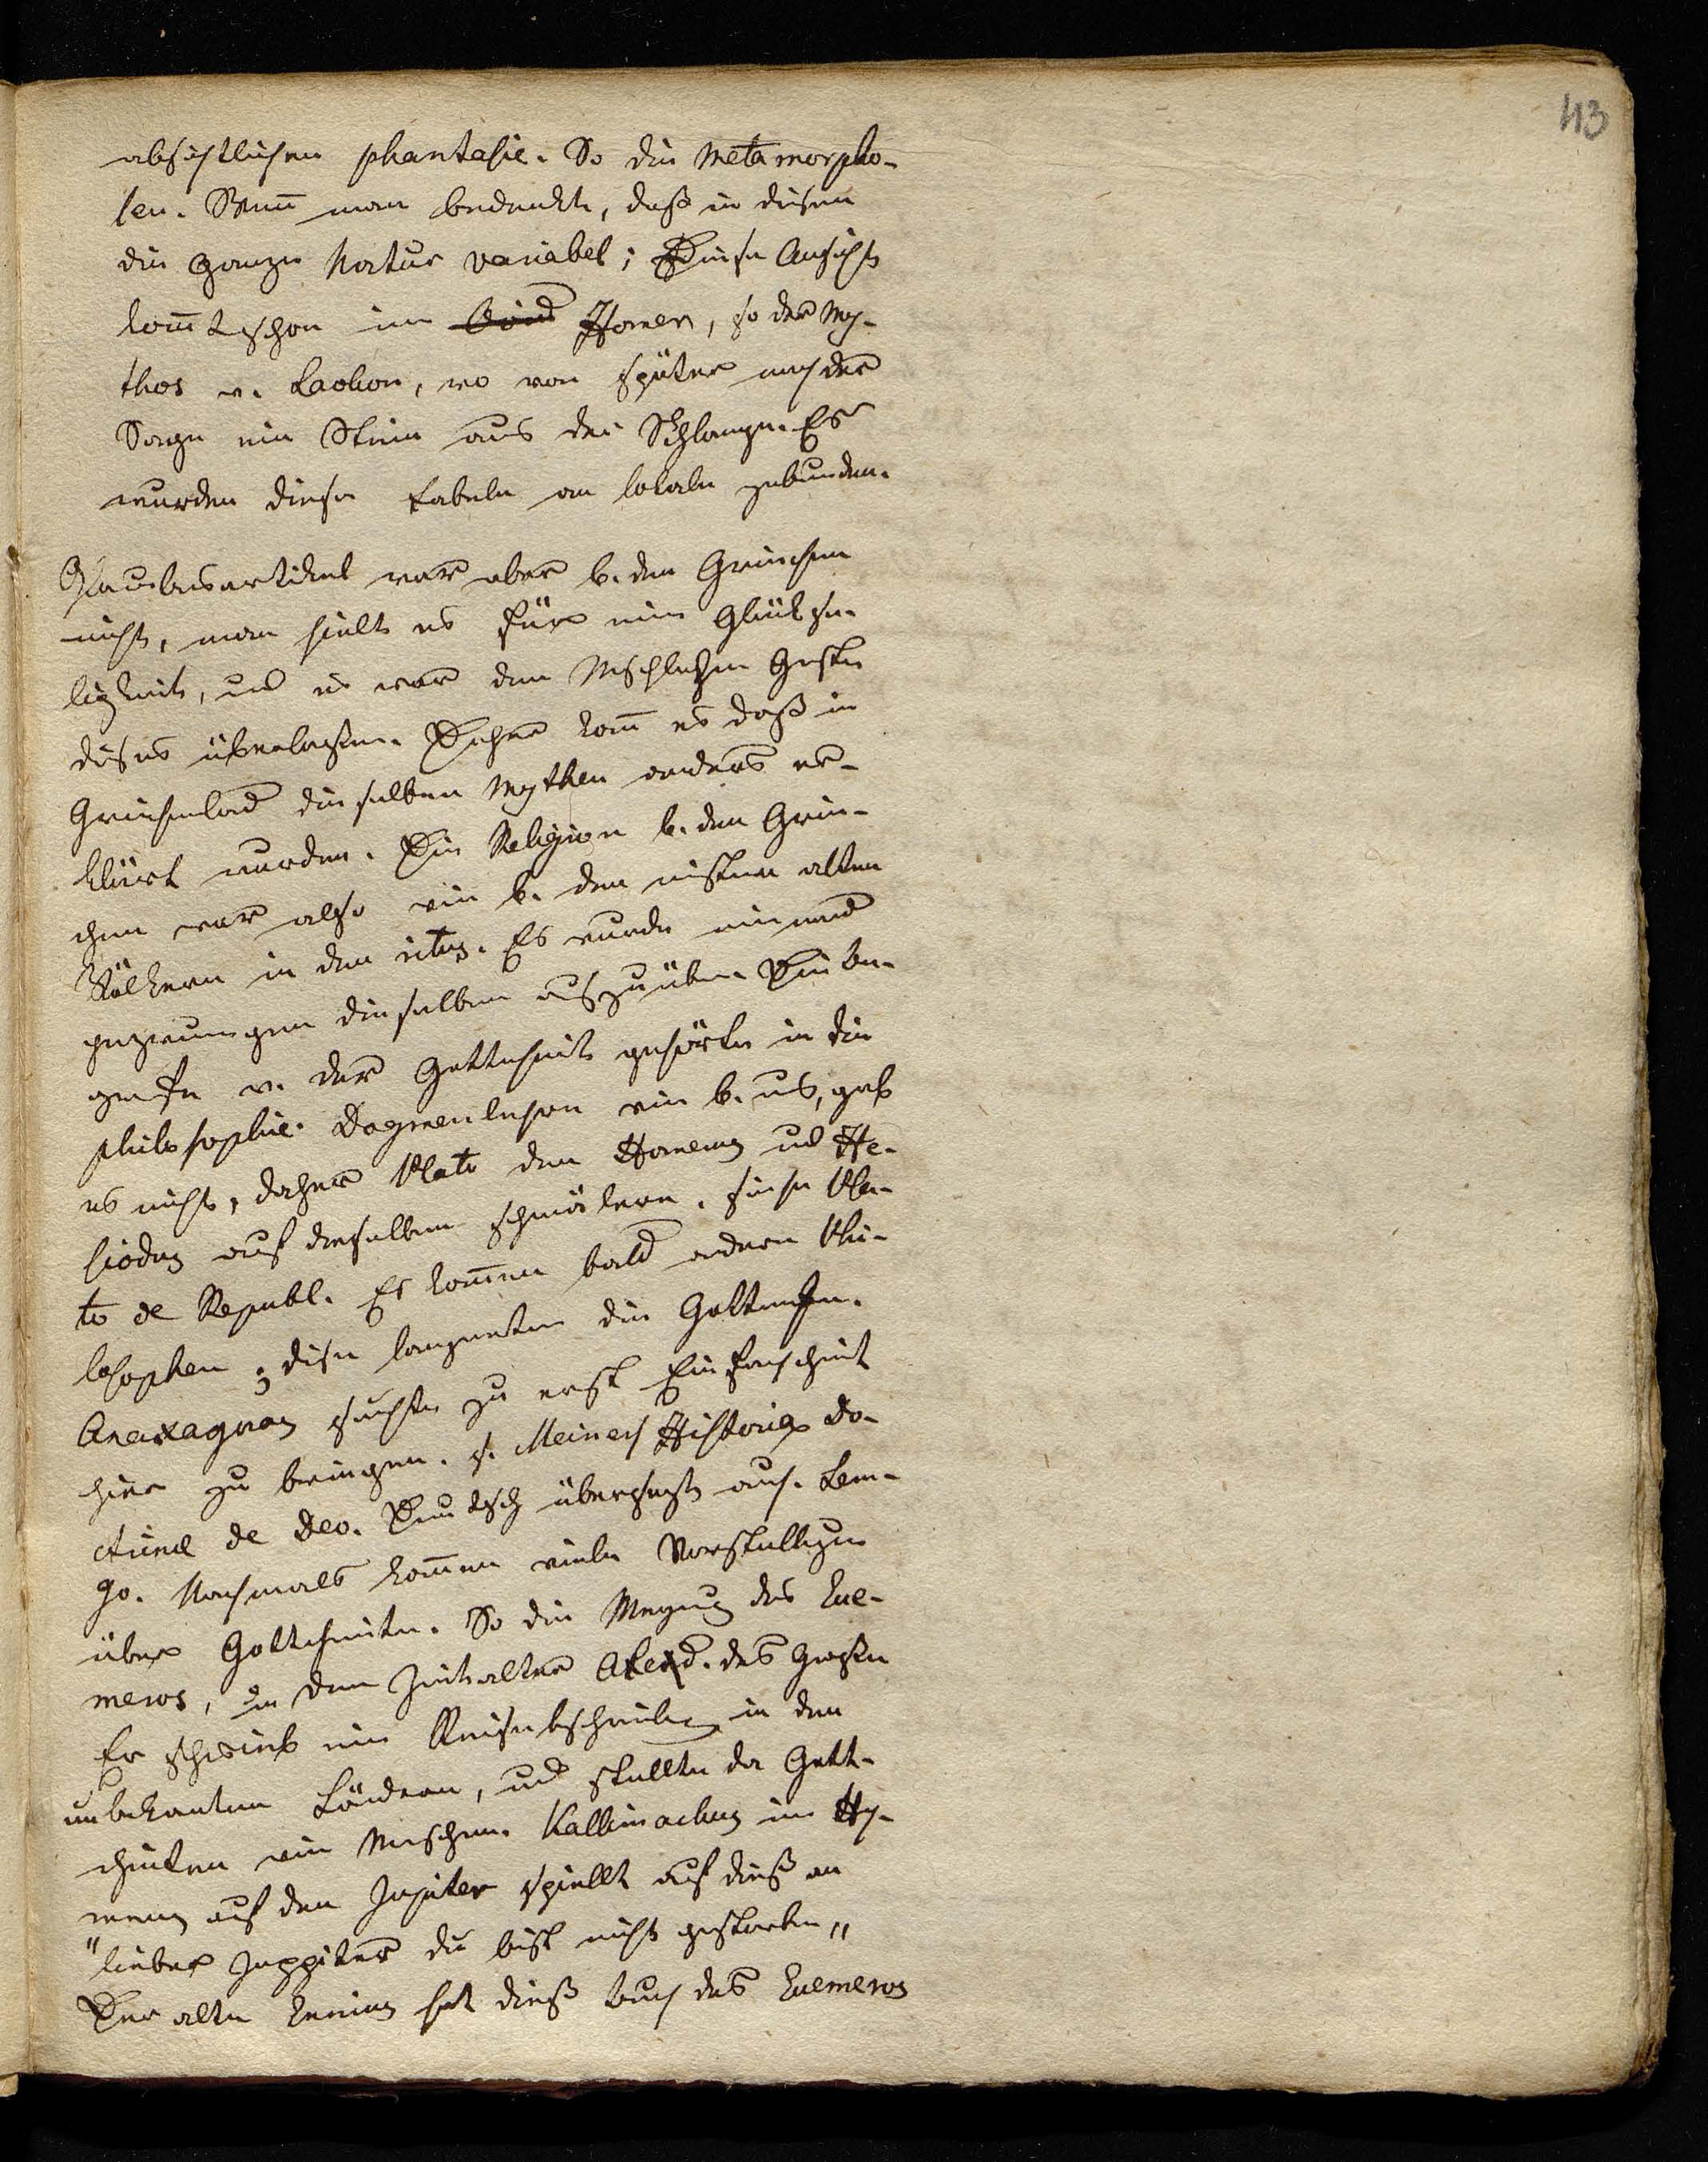 43
absichtlichen phantasie. So die Metamorpho-
sen. Wenn man bedenkt, daß in diesen
die ganze Natur variabel; Diese Ansicht
kom̄t schon im Ovid Homer, so der My-
thos v. Laokon, wo von später nach der
Sage ein Stein aus der Schlange. Es
wurden diese Fabeln an lokale gebunden.
Glaubensartikel war aber b. den Griechen
nicht, man hielt es für eine Glückse-
ligkeit, und es war dem Menschlichen Geste
dieses überlassen. Daher kom̄ es daß in
Griechenland dieselben Mythen anders er-
klärt wurden. Die Religion b. den Grie-
chen war also wie b. den meisten alten
Völkern in den ritus. Es wurde niemand
gezwungen dieselben auszuüben Die be-
griffe v. der Gottheit gehörte in die
philosophie. Dogmenlehren wie b. uns, gab
es nicht, daher Plato den Homerus und He-
siodus auf dieselben schmälern. siehe Pla-
to de Republ. Es kommen bald andere Phi-
losophen; diese laugneten die Gottheiten.
Anaxagoras suchte zu erst Einfachheit
hier zu bringen. s. Meiners Historia do-
ctrinae de Deo. Deutsch übersetzt auch. Lem-
go. Nachmals kommen viele Vorstellungen
über Gottheiten. So die Meynung des Eue-
meros, in dem Zeitalter Alexd. des Großen
Er schrieb eine Reisebeschreibung in den
unbekannten Ländern, und stellte da Gott-
heiten wie Menschen. Kallimachus im Hy-
mnus auf den Jupiter spiellt auf dieß an
"lieber Juppiter du bist nicht gestorben"
Der alte Ennius hat dieß buch des Euemeros